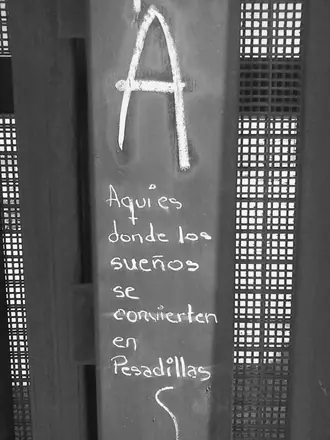 A
Aqui es
donde los
sueños
se
convierten
en
Pesadillas